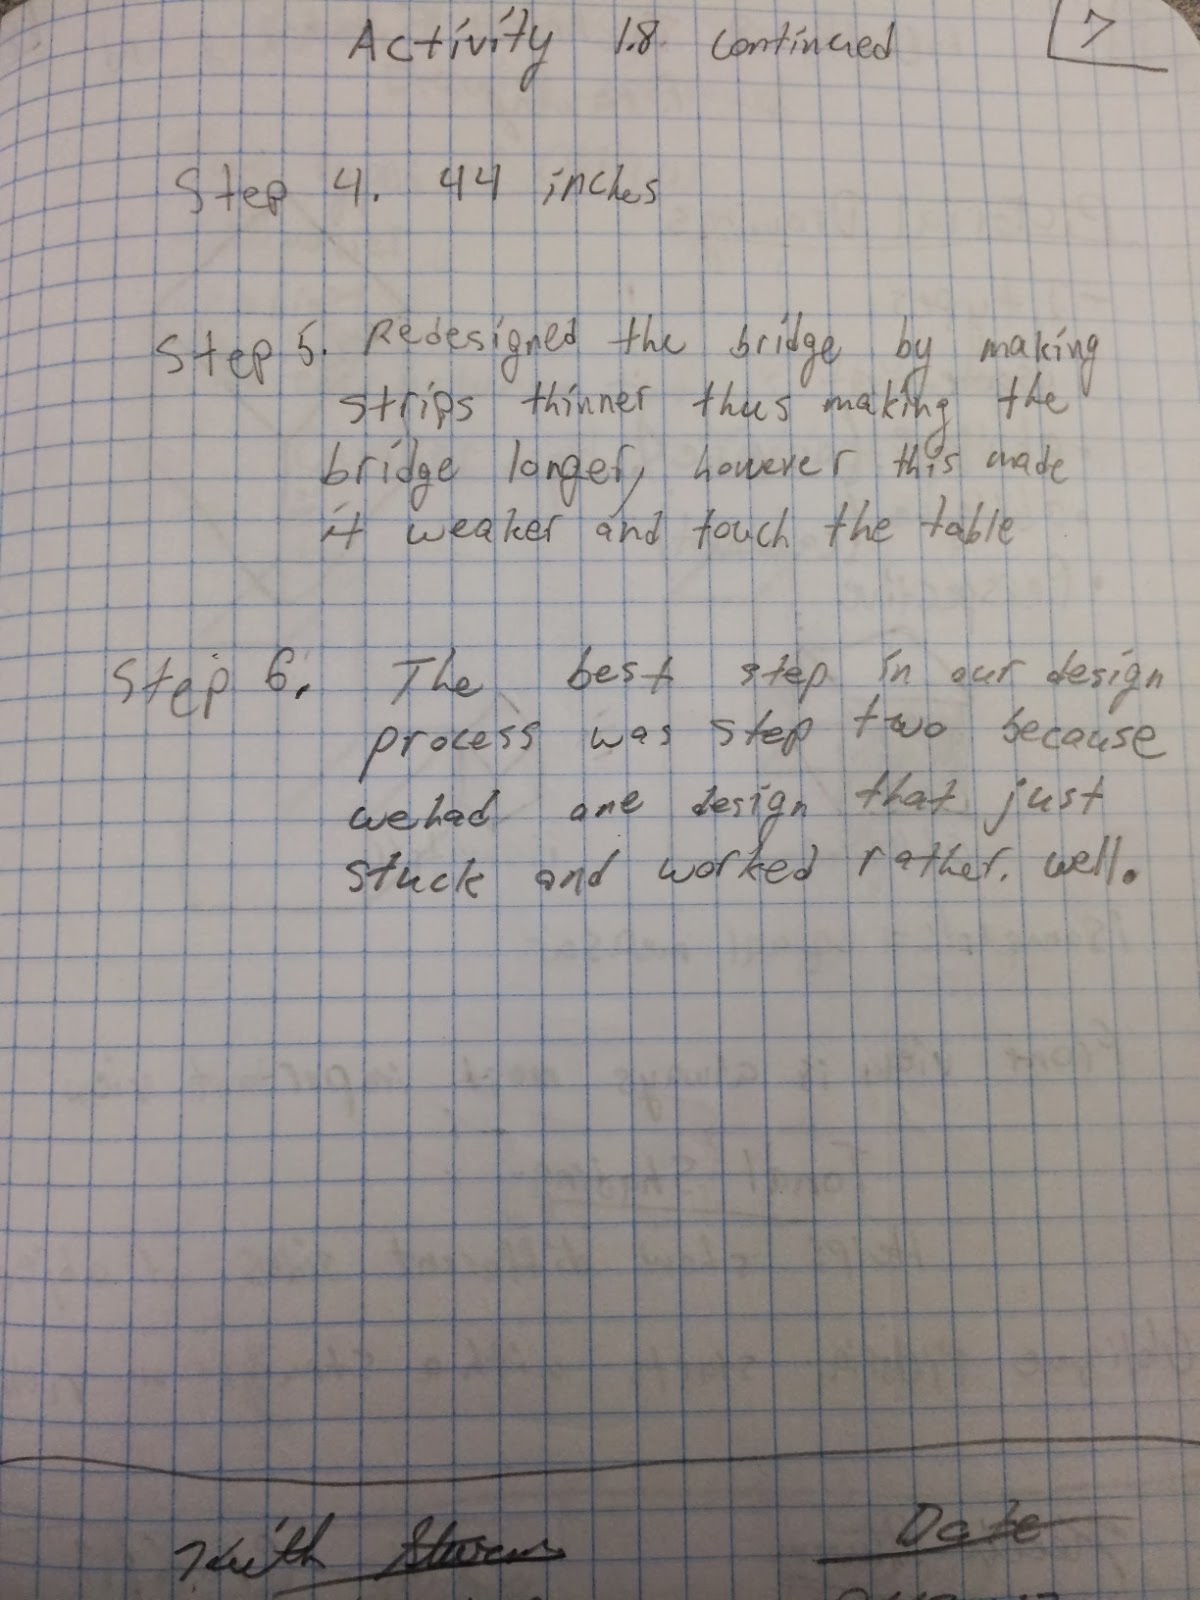 Activity 1.8 continued
7
Step 4. 44 inches
Step 5. Redesigned the bridge by making
strips thinner thus making the
bridge longer, however this made
it weaker and touch the table
Step 6. The best step in our design
process was step two because
wehad one design that just
stuck and worked rather. well.
Keith
Date